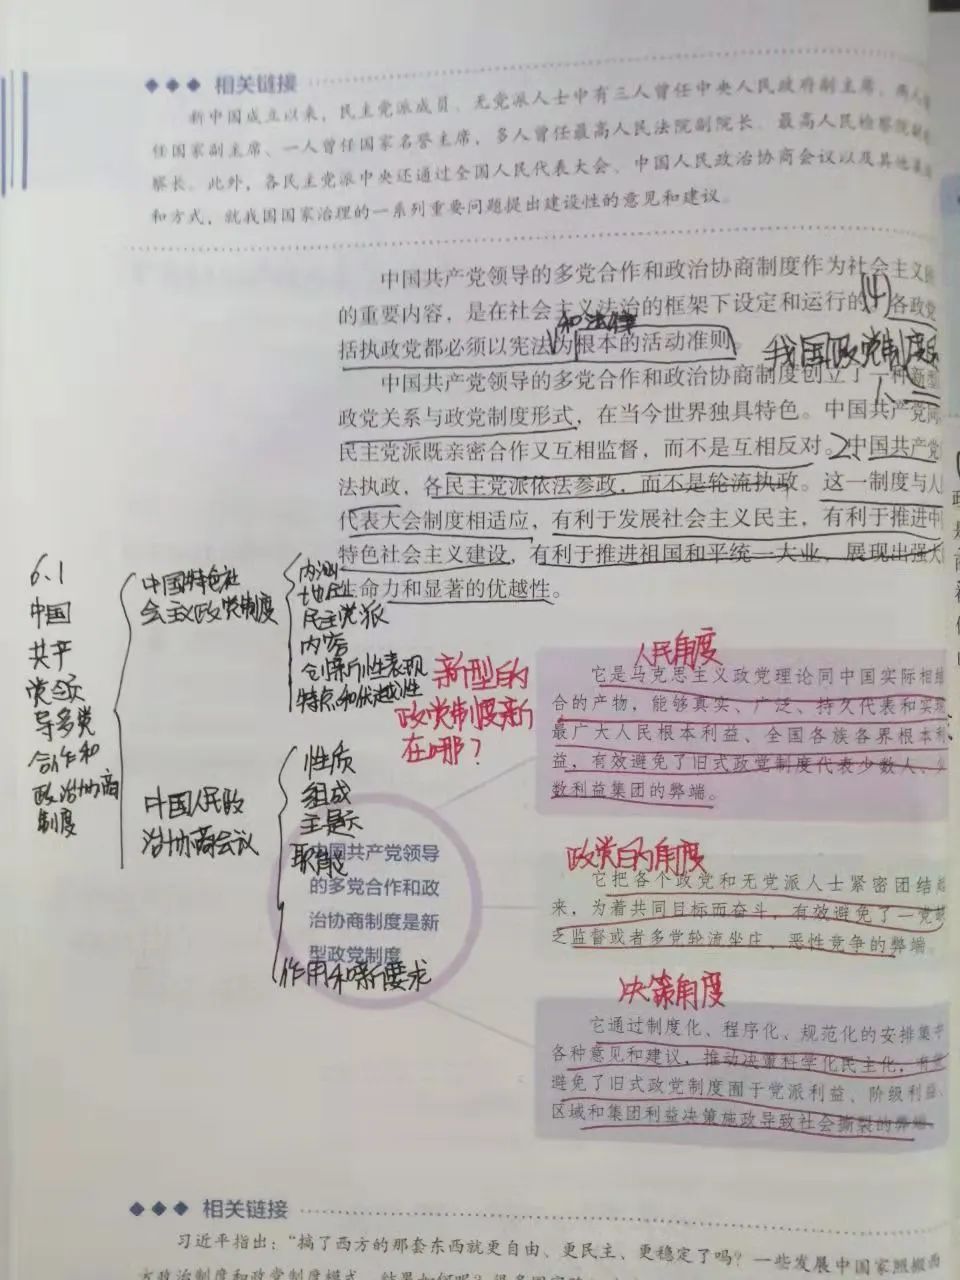 ◆◆◆ 相关链接
新中国成立以来，民主党派成员、无党派人士中有三人曾任中央人民政府副主席、两人
任国家副主席、一人曾任国家名誉主席，多人曾任最高人民法院副院长、最高人民检察院副
察长。此外，各民主党派中央还通过全国人民代表大会、中国人民政治协商会议以及其他
和方式，就我国国家治理的一系列重要问题提出建设性的意见和建议。
中国共产党领导的多党合作和政治协商制度作为社会主义
的重要内容，是在社会主义法治的框架下设定和运行的。(4)各政党
和法律
括执政党都必须以宪法为根本的活动准则。
我国政党制度
中国共产党领导的多党合作和政治协商制度创立了一种新型
1、
政党关系与政党制度形式，在当今世界独具特色。中国共产党同
民主党派既亲密合作又互相监督，而不是互相反对。2、中国共产党
法执政，各民主党派依法参政，而不是轮流执政。这一制度与人
代表大会制度相适应，有利于发展社会主义民主，有利于推进中
特色社会主义建设，有利于推进祖国和平统一大业，展现出强大
生命力和显著的优越性。
6.1
中国
共产
党领
导多党
合作和
政治协商
制度
中国特色社
会主义政党制度
内涵
地位
民主党派
内容
创新性表现
特点和优越性
中国人民政
治协商会议
性质
组成
主题
职能
作用和新要求
新型的
政党制度新
在哪？
中国共产党领导
的多党合作和政
治协商制度是新
型政党制度
人民角度
它是马克思主义政党理论同中国实际相结
合的产物，能够真实、广泛、持久代表和实现
最广大人民根本利益、全国各族各界根本利
益，有效避免了旧式政党制度代表少数人、少
数利益集团的弊端。
政党的角度
它把各个政党和无党派人士紧密团结起
来，为着共同目标而奋斗，有效避免了一党缺
乏监督或者多党轮流坐庄、恶性竞争的弊端。
决策角度
它通过制度化、程序化、规范化的安排集中
各种意见和建议，推动决策科学化民主化，有效
避免了旧式政党制度囿于党派利益、阶级利益、
区域和集团利益决策施政导致社会撕裂的弊端。
◆◆◆ 相关链接
习近平指出：“搞了西方的那套东西就更自由、更民主、更稳定了吗？一些发展中国家照搬西
方政治制度和政党制度模式，结果如何呢？很多国家